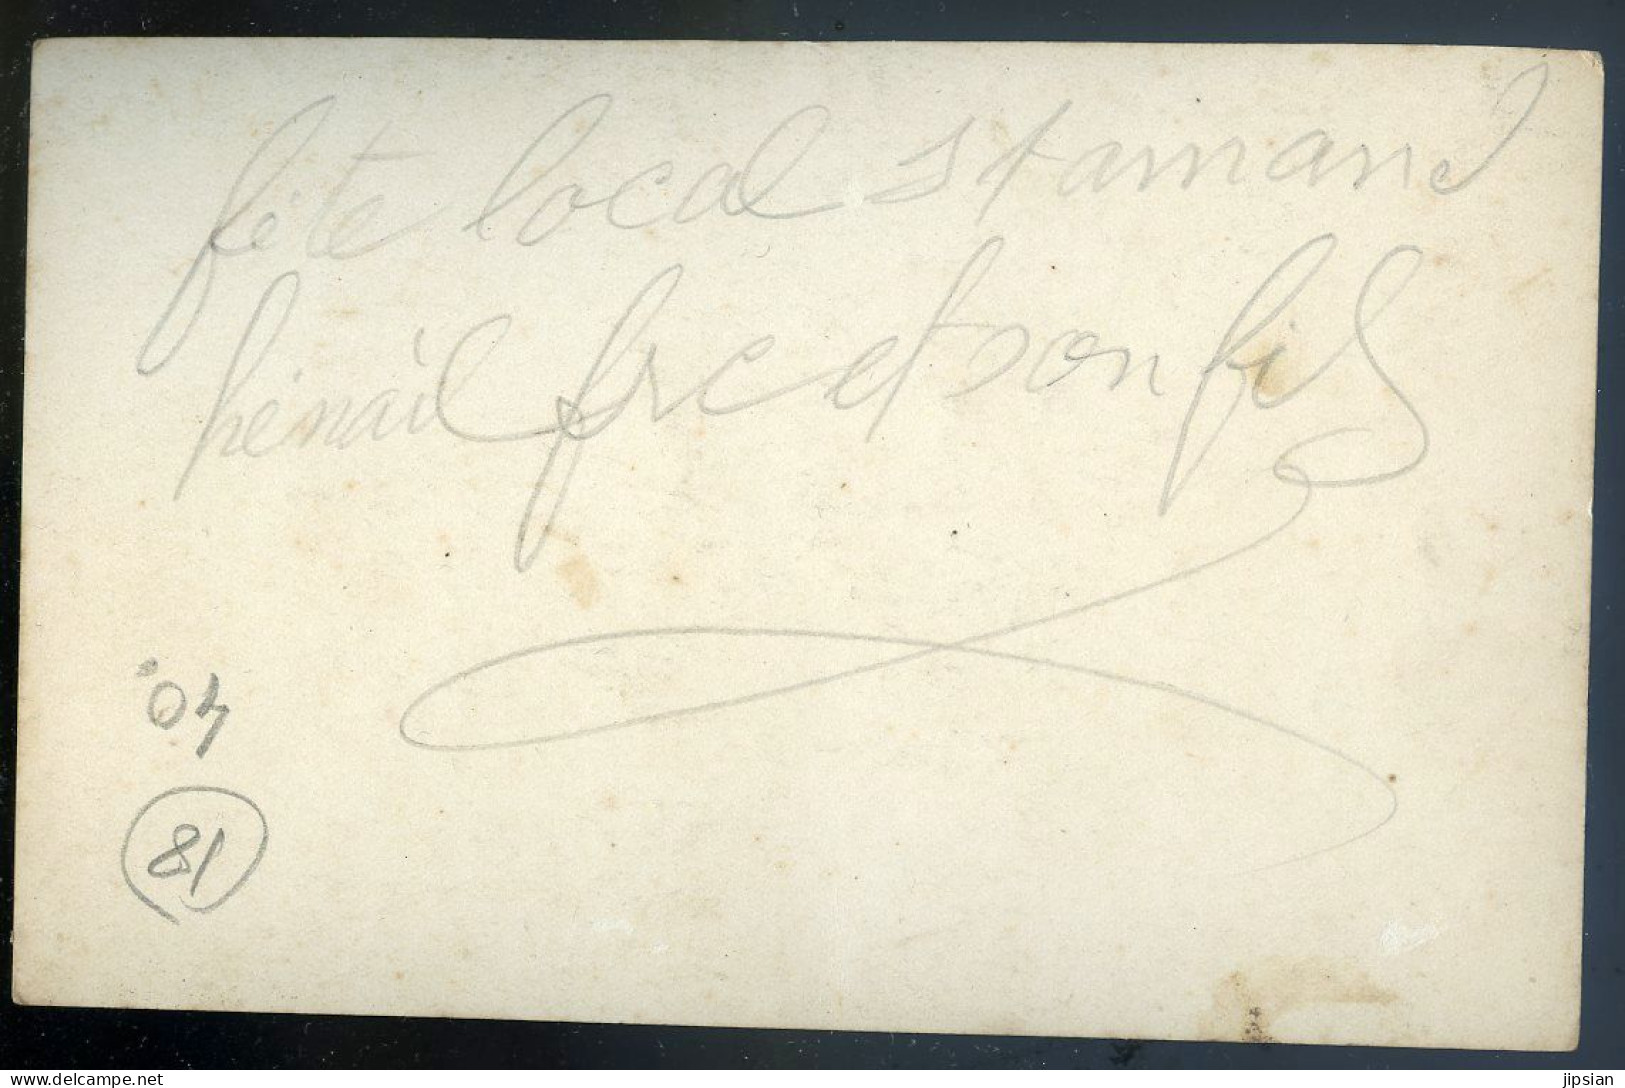 fête local st amand
hénail fre et son fils
'04
81
delcampe.net
jipsian